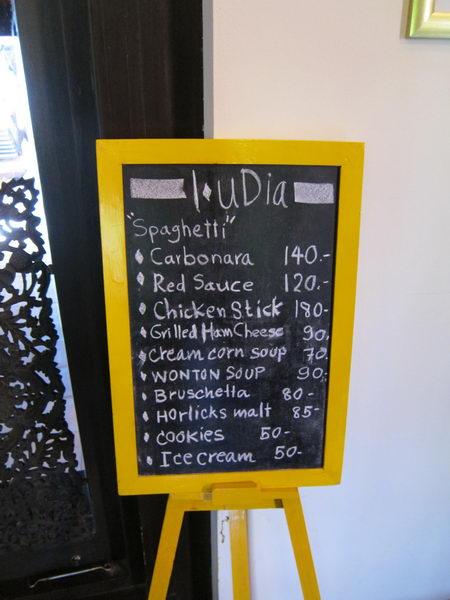 I♦uDia
"Spaghetti"
♦ Carbonara 140.-
♦ Red Sauce 120.-
♦ Chicken Stick 180-
♦ Grilled Ham Cheese 90.
♦ cream corn soup 70.
♦ WONTON SOUP 90.-
♦ Bruschetta 80-
♦ Horlicks malt 85-
♦ cookies 50-
♦ Ice cream 50-